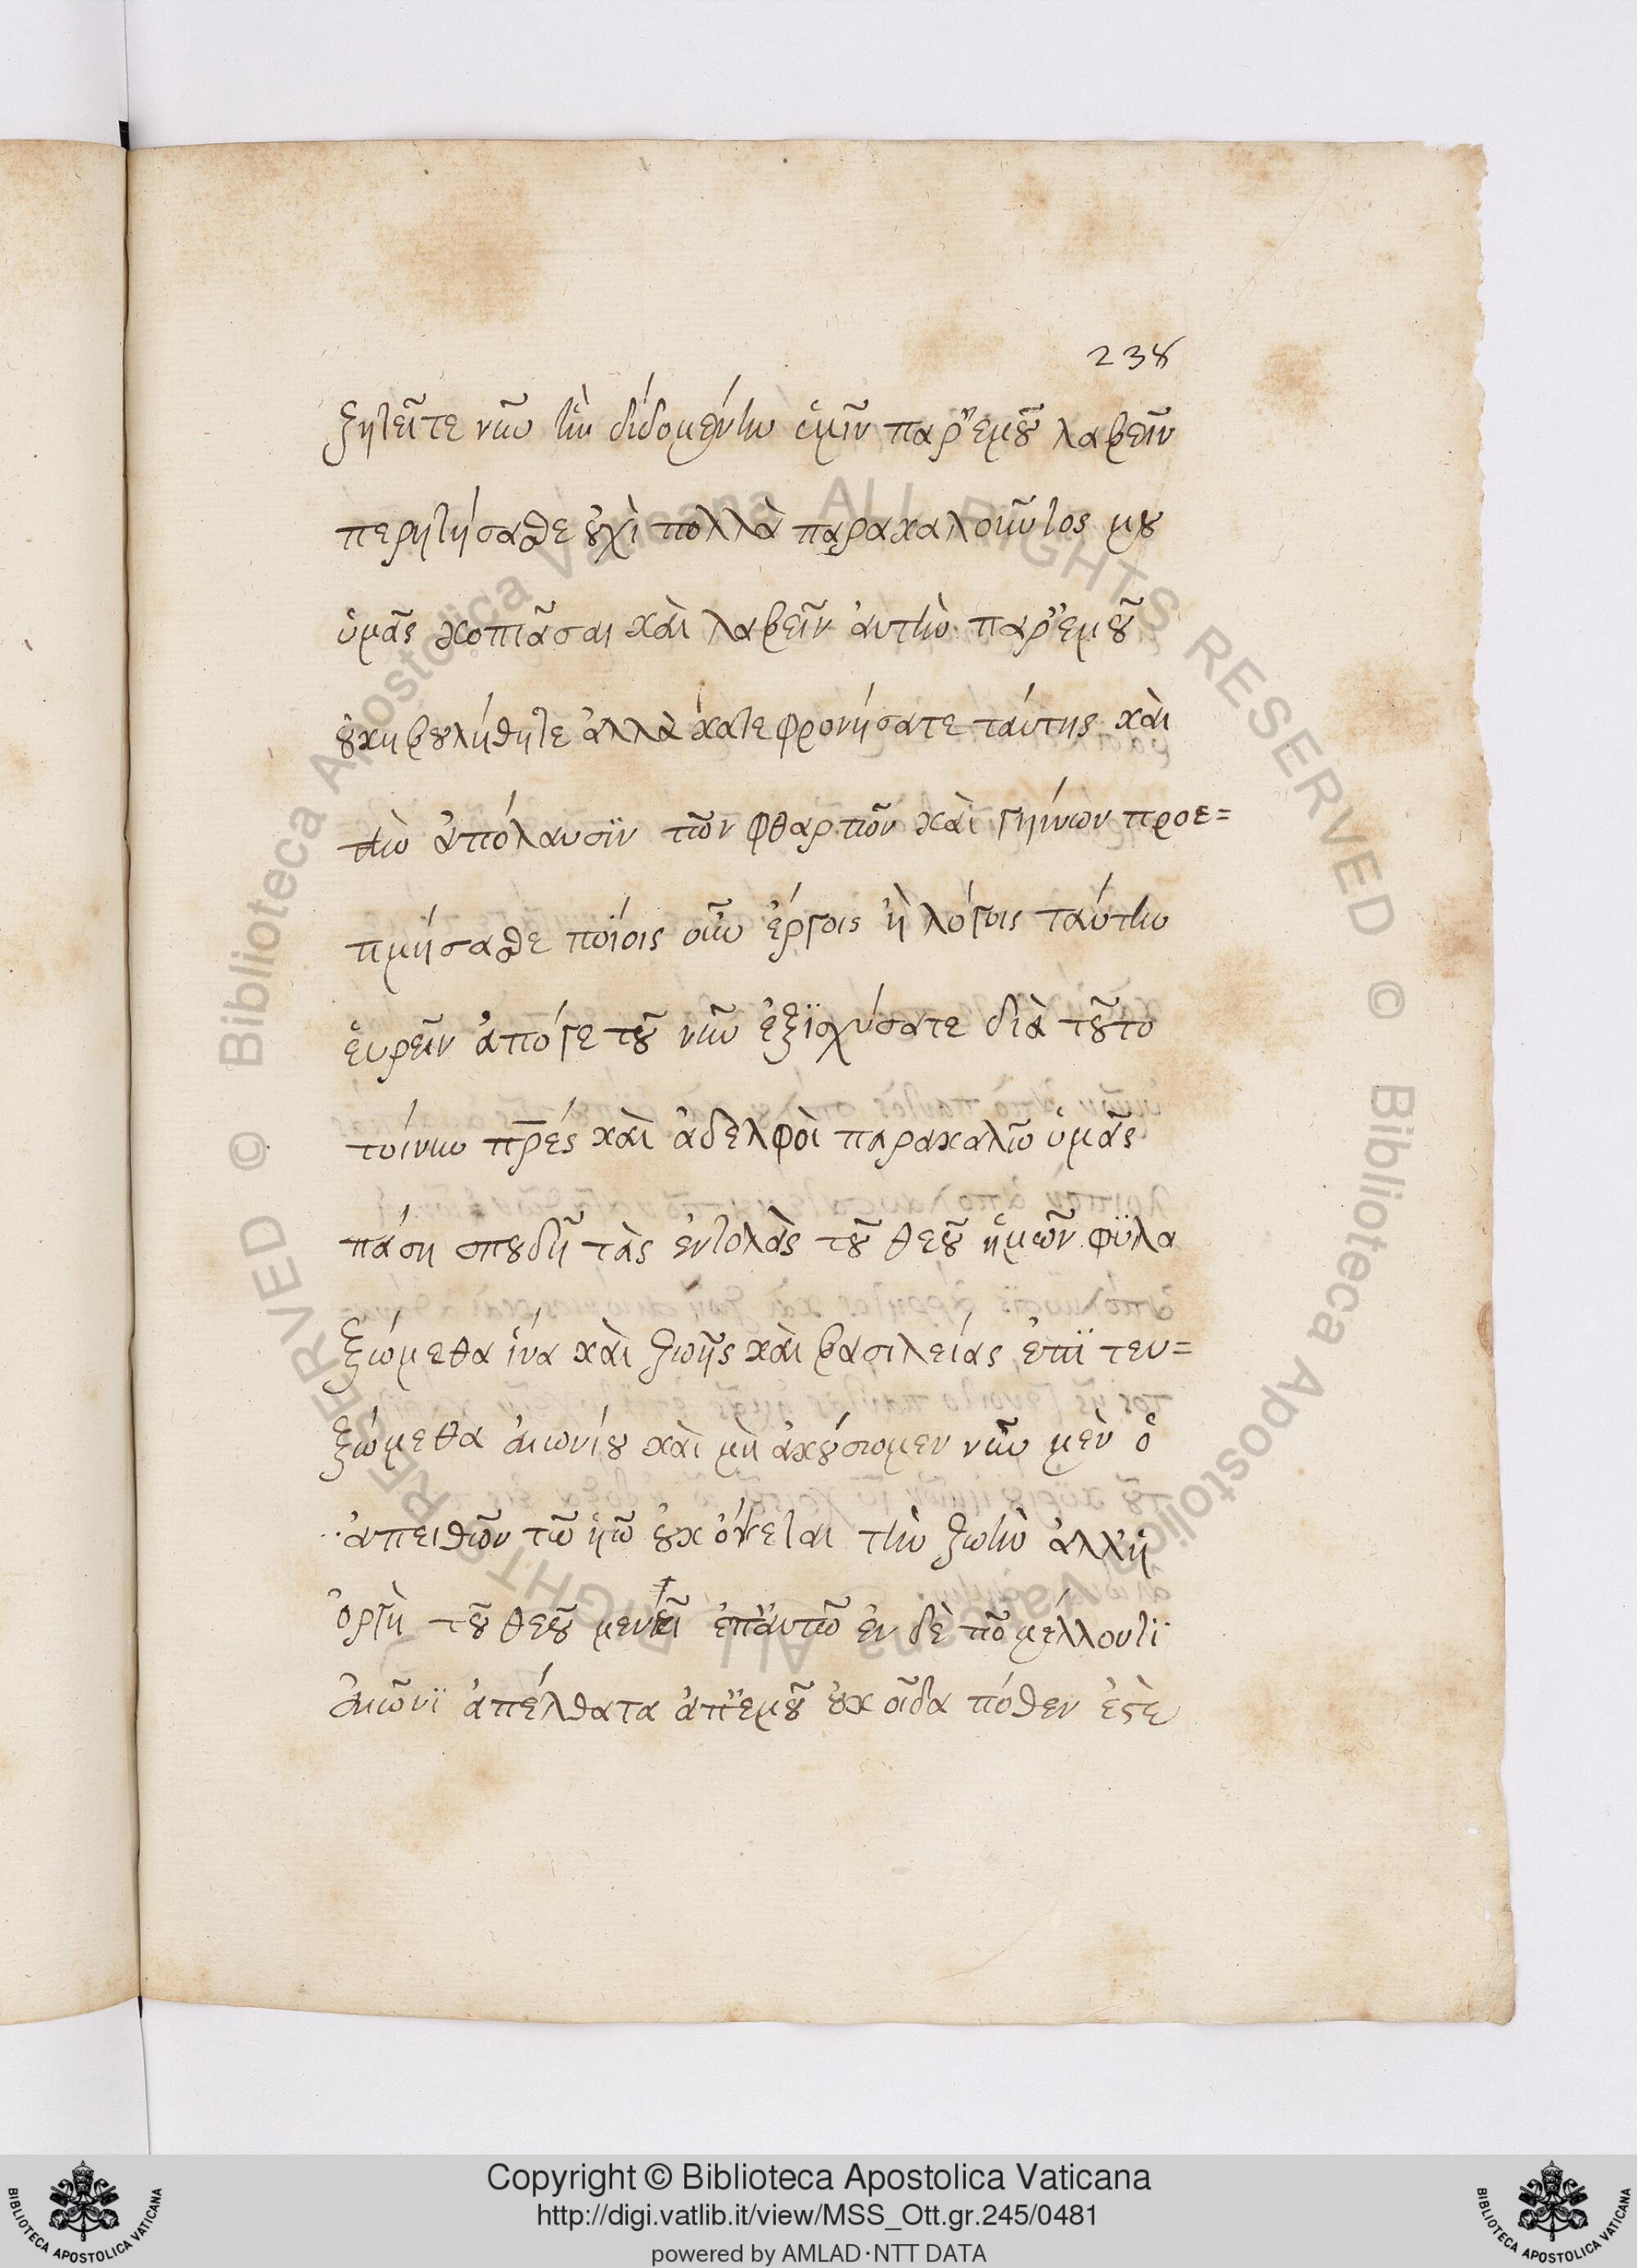 238
ζητεῖτε νῦν τὴν διδομένην ὑμῖν παρ' ἐμοῦ λαβεῖν
περητήσασθε οὐχὶ πολλὰ παρακαλοῦντος μου
ὑμᾶς κοπιᾶσαι καὶ λαβεῖν ἀυτὴν παρ' ἐμοῦ
οὐκ ηβουλήθητε ἀλλὰ κατεφρονήσατε τάυτης καὶ
τὴν ἀπόλαυσϊν τῶν φθαρτῶν καὶ γηίνων προε=
τιμήσασθε ποίοις οὖν ἔργοις ἢ λόγοις τάυτην
ἑυρεῖν ἀπόγε τοῦ νῦν ἐξϊσχύσατε διὰ τοῦτο
τοίνυν πρ̅ές καὶ ἀδελφοὶ παρακαλῶ ὑμᾶς
πάση σπουδῆ τὰς ἐντολὰς τοῦ θεοῦ ἡμῶν φϋλα
ξώμεθα ἵνα καὶ ζωῆς καὶ βασιλείας ἐπϊ τευ=
ξώμεθα ἀιωνίου καὶ μὴ ἀκούσωμεν νῦν μὲν ὁ
ἀπειθῶν τῶ ϋῶ οὐκ ὄψεται τὴν ζωὴν ἀλλ' ἡ
ὀργὴ τοῦ θεοῦ μενεῖ ἐπ' ἀυτῶ ἐν δὲ τῶ μέλλοντϊ
ἀιῶνϊ ἀπέλθατα ἀπ' ἐμοῦ οὐκ οἶδα πόθεν ἐστὲ
Copyright © Biblioteca Apostolica Vaticana
http://digi.vatlib.it/view/MSS_Ott.gr.245/0481
powered by AMLAD·NTT DATA
BIBLIOTECA APOSTOLICA VATICANA
BIBLIOTECA APOSTOLICA VATICANA
© Biblioteca Apostolica Vaticana ALL RIGHTS RESERVED
© Biblioteca Apostolica Vaticana ALL RIGHTS RESERVED